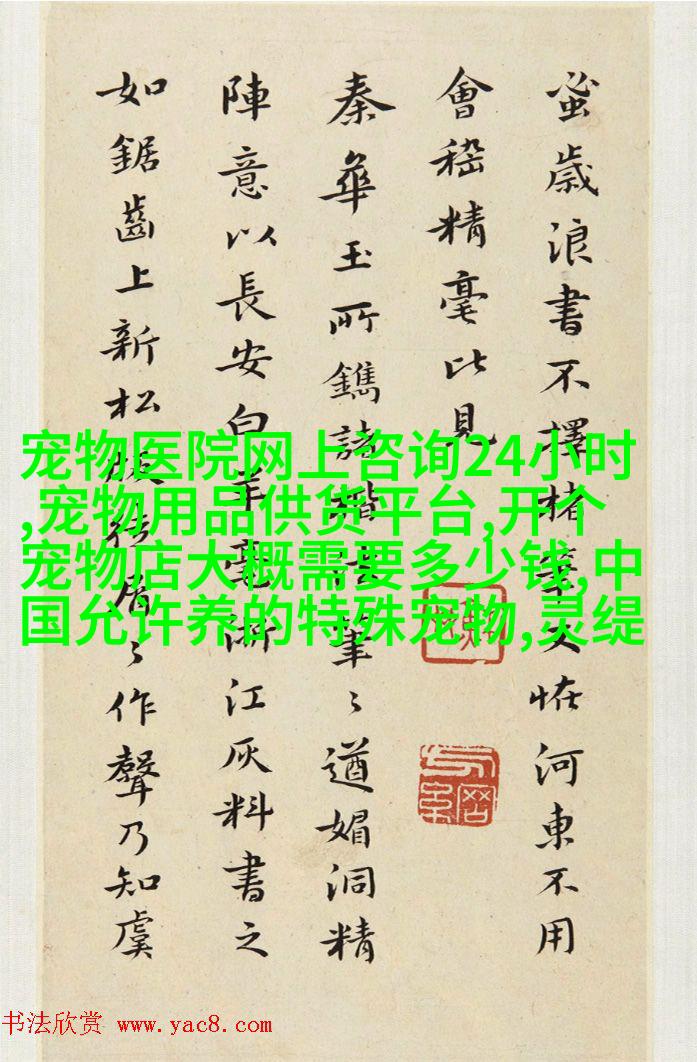 蚤歲浪書不擇楮筆又怪河東不用
會稽精毫比見
秦華玉所鐫諸楷法筆々遒媚洞精
陣意以長安白羊毫浙江灰料書之
如鋸齒上新松板徐屑々作聲乃知虞
宠物医院网上咨询24小时
,宠物用品供货平台,开个
宠物店大概需要多少钱,中
国允许养的特殊宠物,灵缇
书法欣赏 www.yac8.com